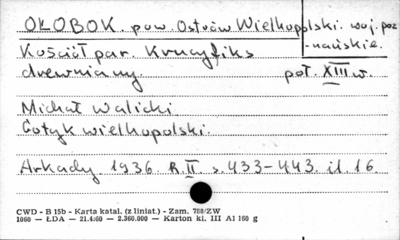 OŁOBOK. pow. Ostrów Wielkopolski. woj. poz
-nańskie.
Kościół par. Krucyfiks
drewniany. poł. XIII w.
Michał Walicki
Gotyk wielkopolski.
Arkady. 1936. R. II. s. 433-443. il. 16.
CWD - B 15b - Karta katal. (z liniat.) - Zam. 788/ZW
1060 - ŁDA - 21.4.60 - 2.360.000 - Karton kl. III A1 160 g